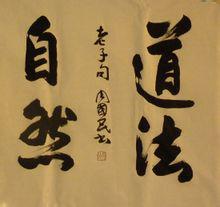 道法
自然
老子句 周国民书